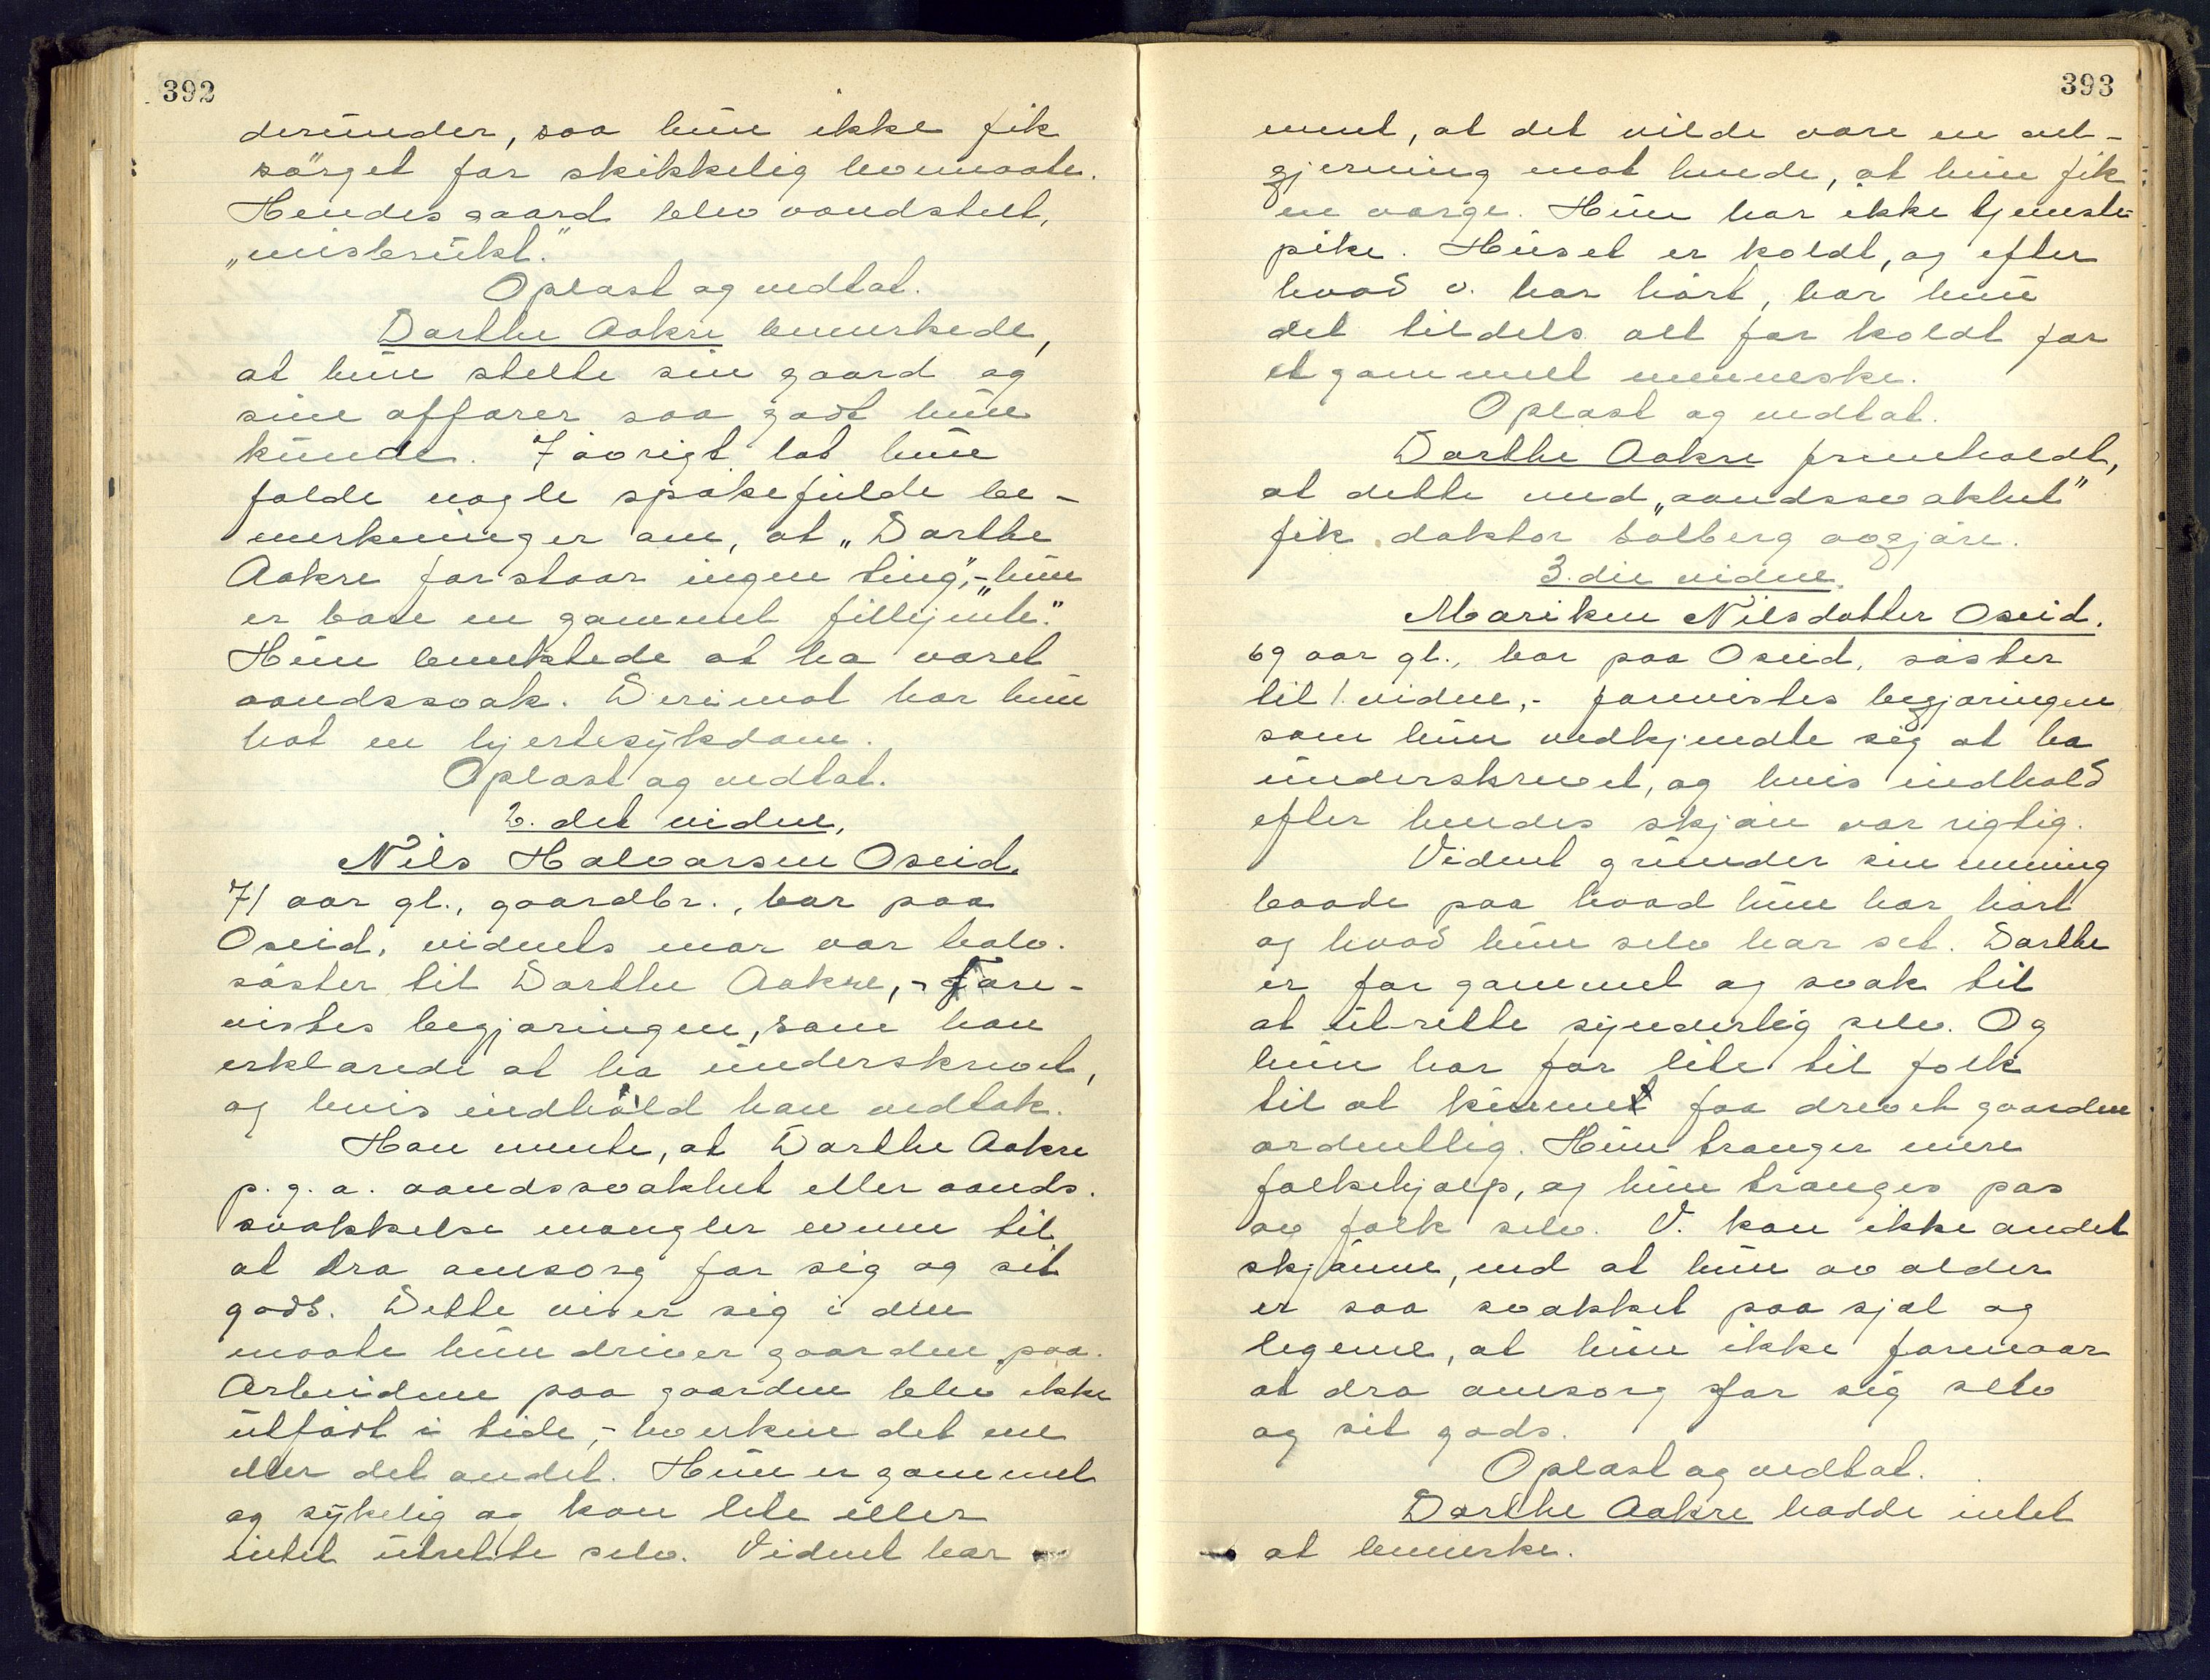 392
derunder, saa hun ikke fik
sørget for skikkelig levemaate.
Hendes gaard blev vandstelt,
„misbrukt."
Oplæst og vedtat.
Dorthe Aakre bemerkede,
at hun stelte sin gaard og
sine affærer saa godt hun
kunde. I øvrigt lot hun
falde nogle spøkefulde be-
merkninger om, at „Dorthe
Aakre forstaar ingen ting", - „hun
er bare en gammel fillejente."
Hun benektede at ha været
aandssvak. Derimot har hun
hat en hjertesykdom.
Oplæst og vedtat.
2. det vidne,
Nils Halvorsen Oseid.
71 aar gl., gaardbr., bor paa
Oseid, vidnets mor var halv-
søster til Dorthe Aakre, - Fore-
vistes begjæringen, som han
erklærede at ha underskrevet,
og hvis indhold han vedtok.
Han mente, at Dorthe Aakre
p. g. a. aandssvakhet eller aands-
svækkelse mangler evnen til
at dra omsorg for sig og sit
gods. Dette viser sig i den
maate hun driver gaarden paa.
Arbeidene paa gaarden blev ikke
utført i tide, - hverken det ene
eller det andet. Hun er gammel
og sykelig og kan lite eller
intet utrette selv. Vidnet har
393
ment, at det vilde være en vel-
gjerning mot hende, at hun fik
en værge. Hun har ikke tjeneste-
pike. Huset er koldt, og efter
hvad v. har hørt, har hun
det tildels alt for koldt for
et gammelt menneske.
Oplæst og vedtat.
Dorthe Aakre fremholdt,
at dette med „aandssvakhet"
fik doktor Solberg avgjøre.
3. die vidne.
Mariken Nilsdatter Oseid.
69 aar gl., bor paa Oseid, søster
til 1. vidne, - forevistes begjæringen
som hun vedkjendte sig at ha
underskrevet, og hvis indhold
efter hendes skjøn var rigtig.
Vidnet grunder sin mening
baade paa hvad hun har hørt
og hvad hun selv har set. Dorthe
er for gammel og svak til
at utrette synderlig selv. Og
hun har for lite til folk
til at kunne faa drevet gaarden
ordentlig. Hun trænger mere
folkehjælp, og hun trænges pas
av folk selv. V. kan ikke andet
skjønne, end at hun av alder
er saa svækket paa sjæl og
legeme, at hun ikke formaar
at dra omsorg for sig selv
og sit gods.
Oplæst og vedtat.
Dorthe Aakre hadde intet
at bemerke.